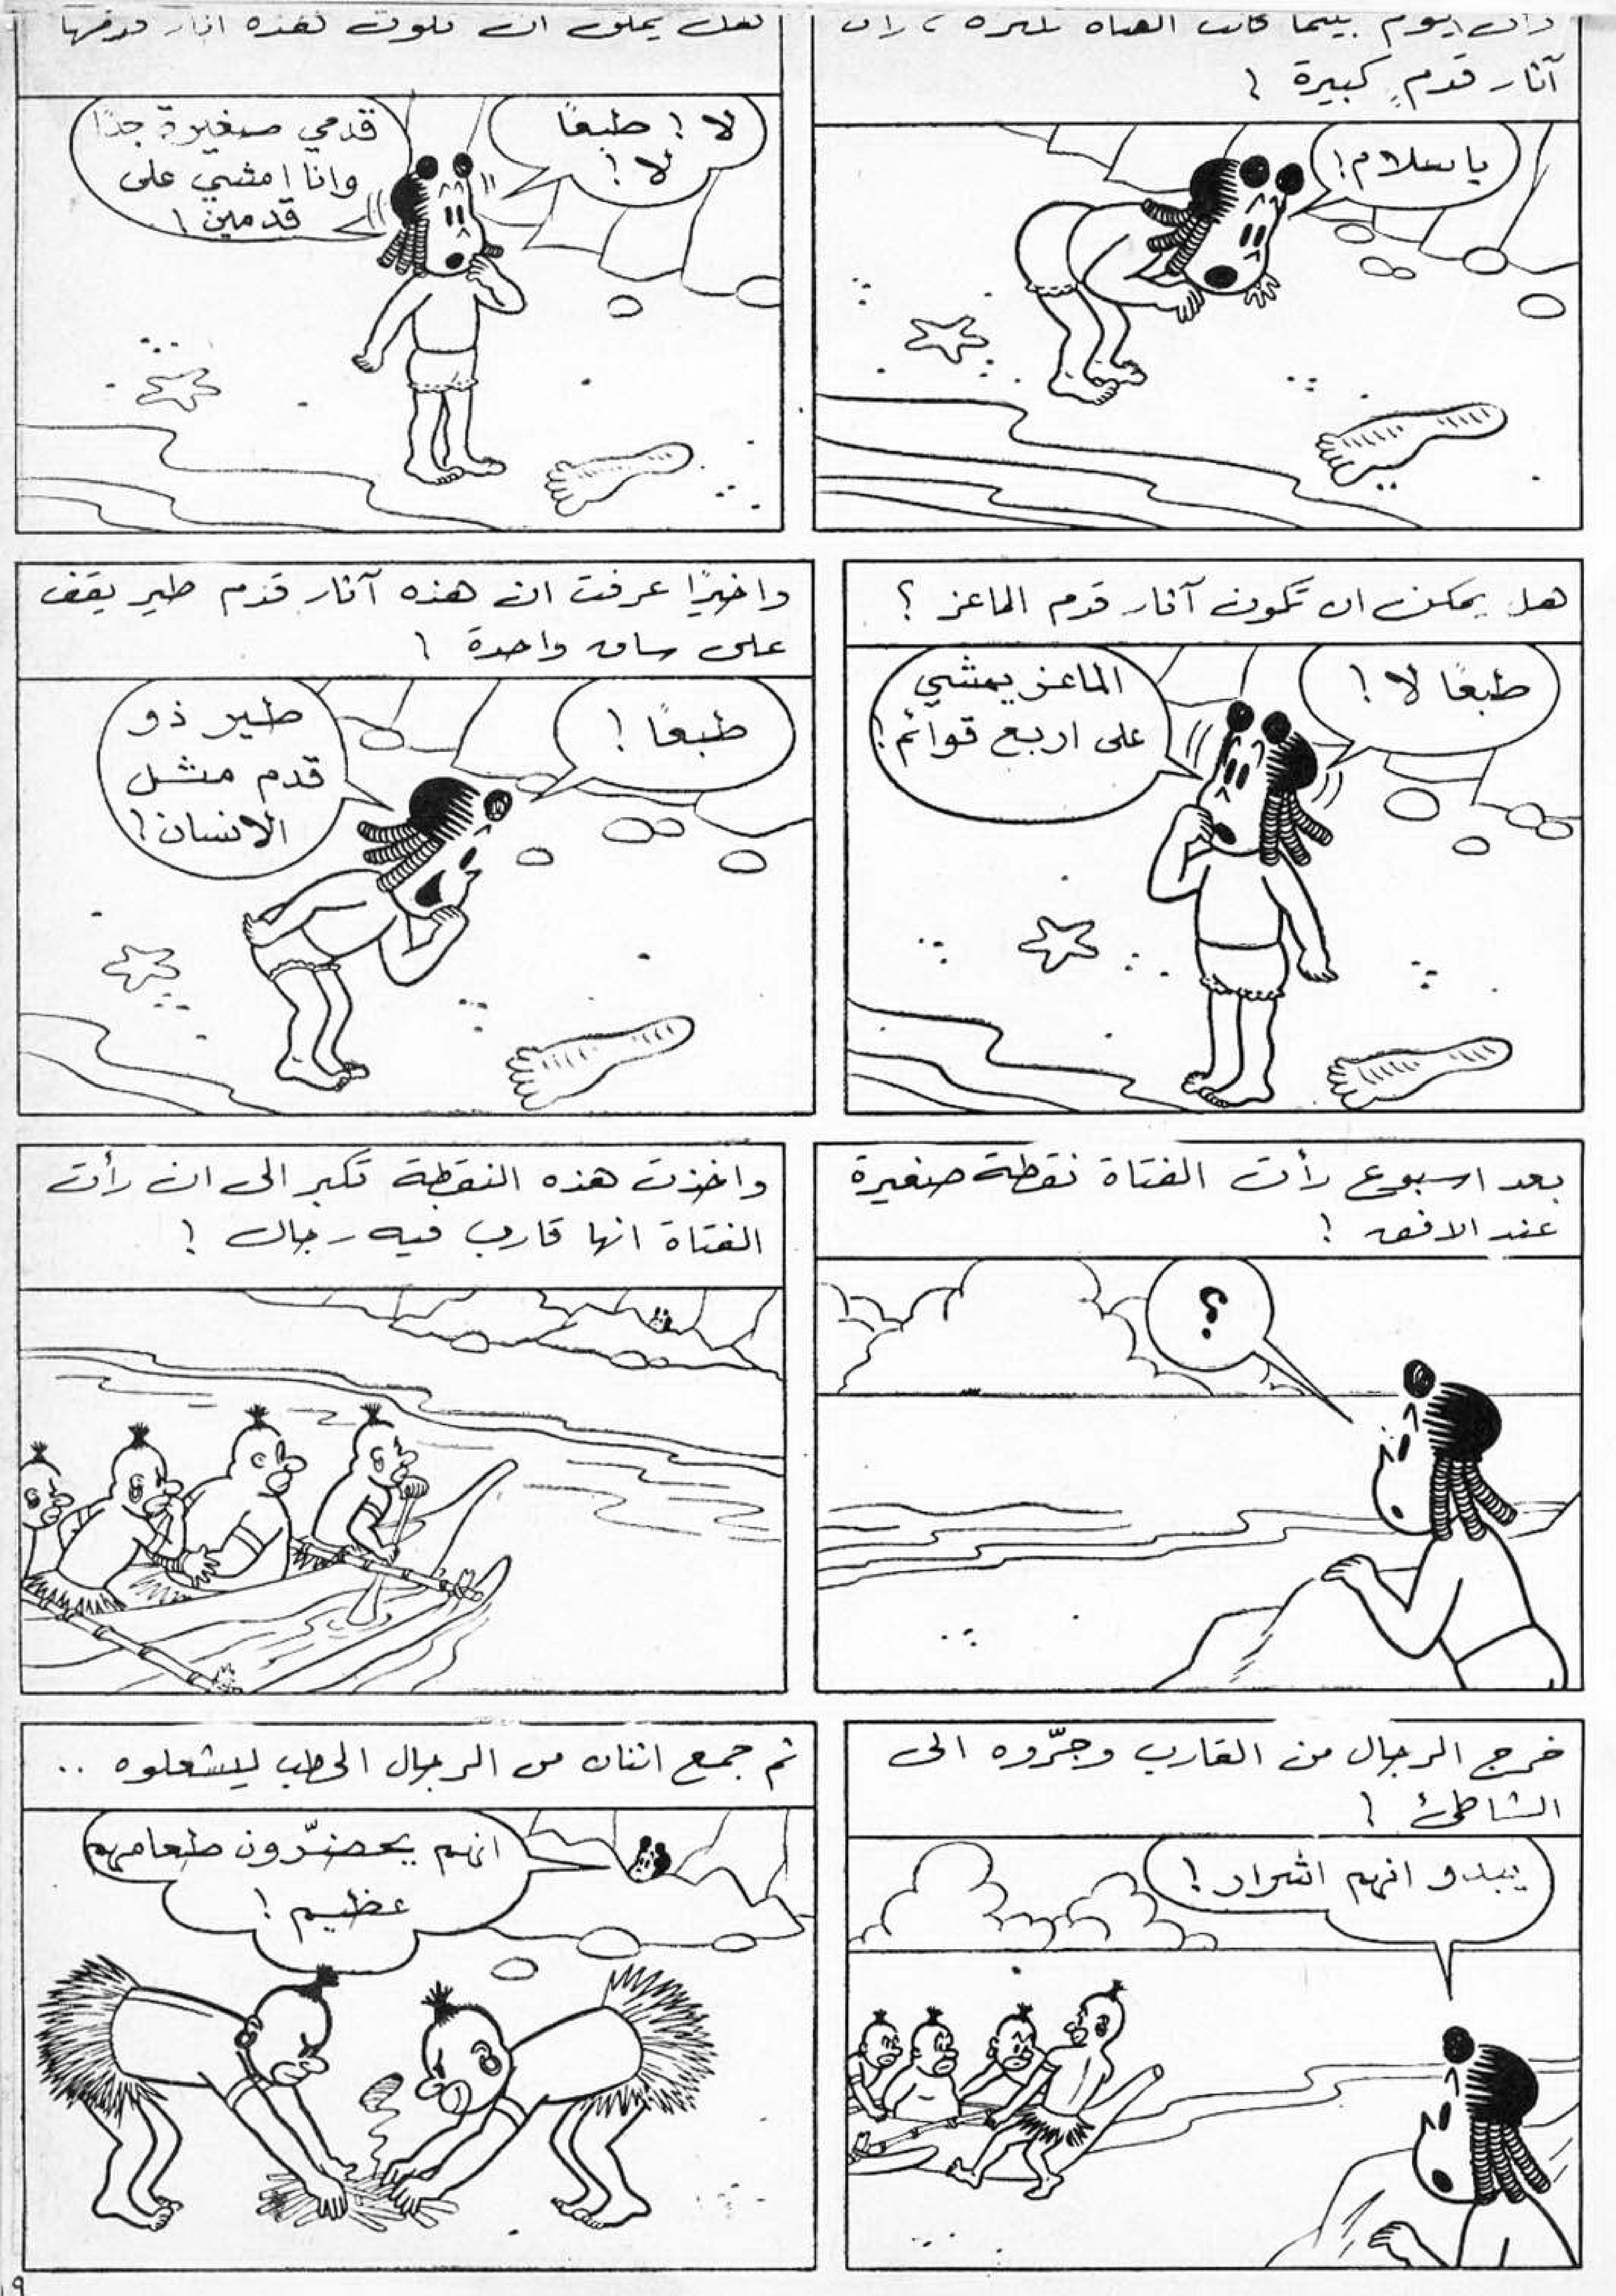 ذات يوم بينما كانت الفتاة تلهره ، رأت
آثار قدمٍ كبيرة !
يا سلام !
هل يمكن ان تكون هذه آثار قدمها
لا ! طبعًا
لا !
قدمي صغيرة جدًا
وانا امشي على
قدمين !
هل يمكن ان تكون آثار قدم الماعز ؟
طبعًا لا !
الماعز يمشي
على اربع قوائم !
واخيرًا عرفت ان هذه آثار قدم طير يقف
على ساق واحدة !
طبعًا !
طير ذو
قدم مثل
الانسان !
بعد اسبوع رأت الفتاة نقطة صغيرة
عند الافق !
؟
واخذت هذه النقطة تكبر الى ان رأت
الفتاة انها قارب فيه رجال !
خرج الرجال من القارب وجرّوه الى
الشاطئ !
يبدو انهم اشرار !
ثم جمع اثنان من الرجال الحطب ليشعلوه ..
انهم يحضّرون طعامهم
عظيم !